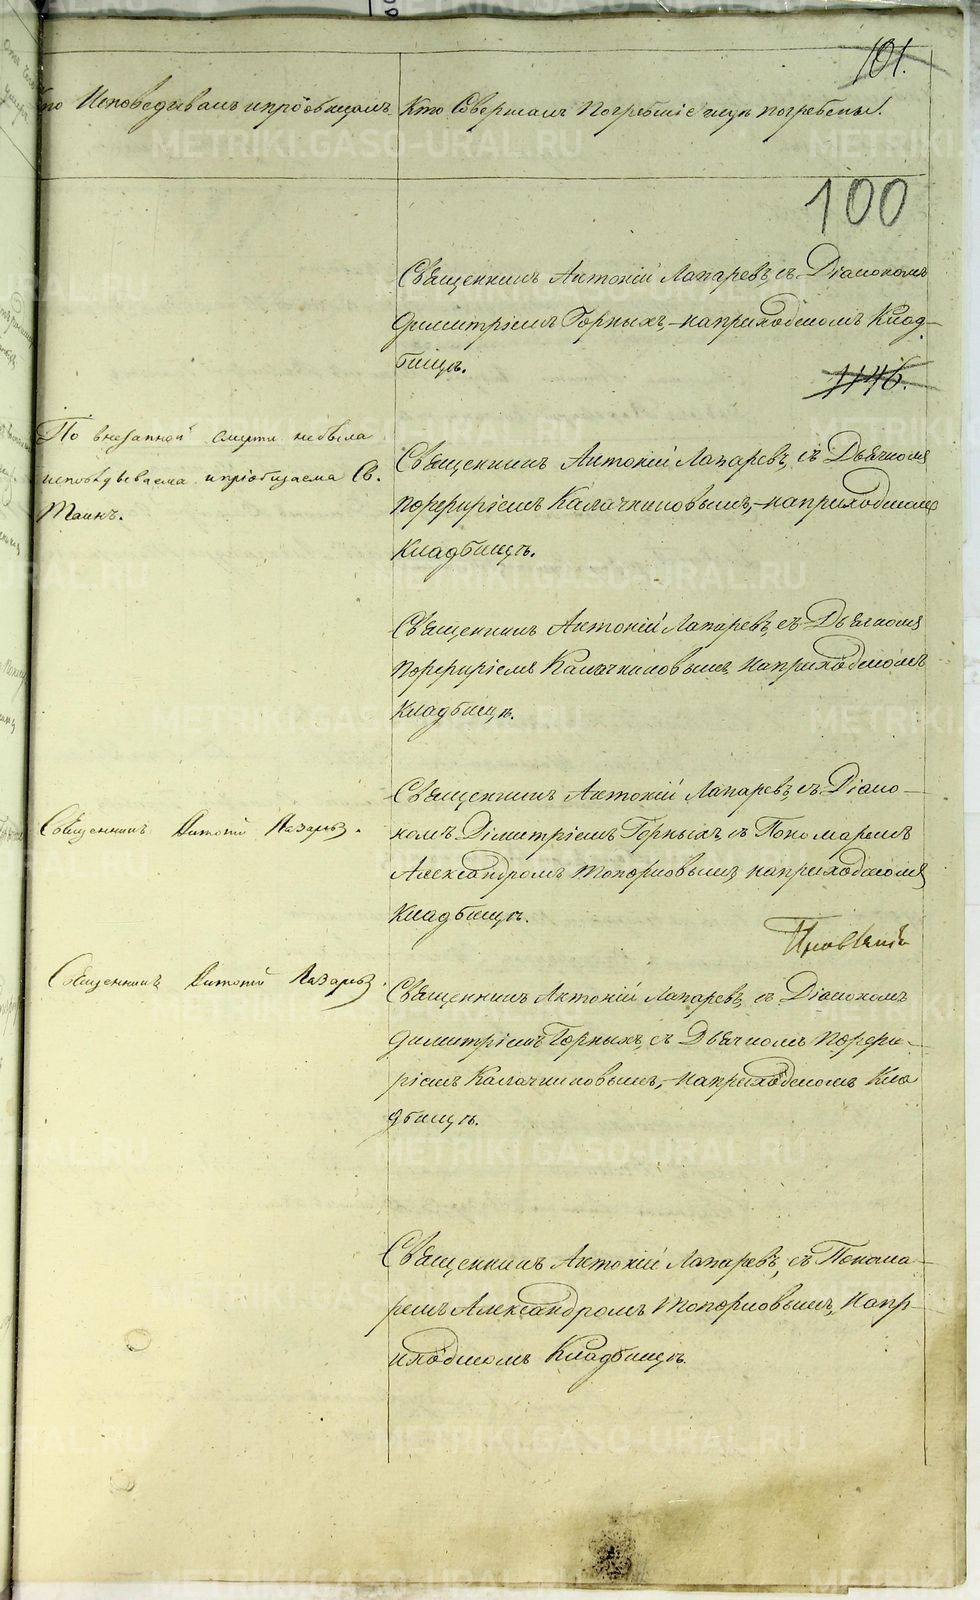 101.
Исповедывалъ и прiобщалъ.
Кто Совершалъ Погребенiе и гдѣ погребены.
100
Священникъ Антонiй Лапаревъ, съ Дiакономъ
Димитрiемъ Горныхъ, на приходскомъ Клад-
бищѣ.
1146.
По внезапной смерти небыла
исповѣдываема и прiобщаема Св.
Таинъ.
Священникъ Антонiй Лапаревъ, съ Дьячкомъ
Порфирiемъ Калачниковымъ, на приходскомъ
Кладбищѣ.
Священникъ Антонiй Лапаревъ, съ Дьячкомъ
Порфирiемъ Калачниковымъ, на приходскомъ
Кладбищѣ.
Священникъ Антонiй Лапаревъ.
Священникъ Антонiй Лапаревъ, съ Дiако-
номъ Дiмитрiемъ Горныхъ, съ Пономаремъ
Александромъ Топорковымъ, на приходскомъ
Кладбищѣ.
Священникъ Антонiй Лапаревъ.
Священникъ Антонiй Лапаревъ, съ Дiакономъ
Димитрiемъ Горныхъ, съ Дьячкомъ Порфи-
рiемъ Калачниковымъ, на приходскомъ Кла
дбищѣ.
Священникъ Антонiй Лапаревъ, съ Понома-
ремъ Александромъ Топорковымъ, на пр-
иходскомъ Кладбищѣ.
METRIKI.GASO-URAL.RU